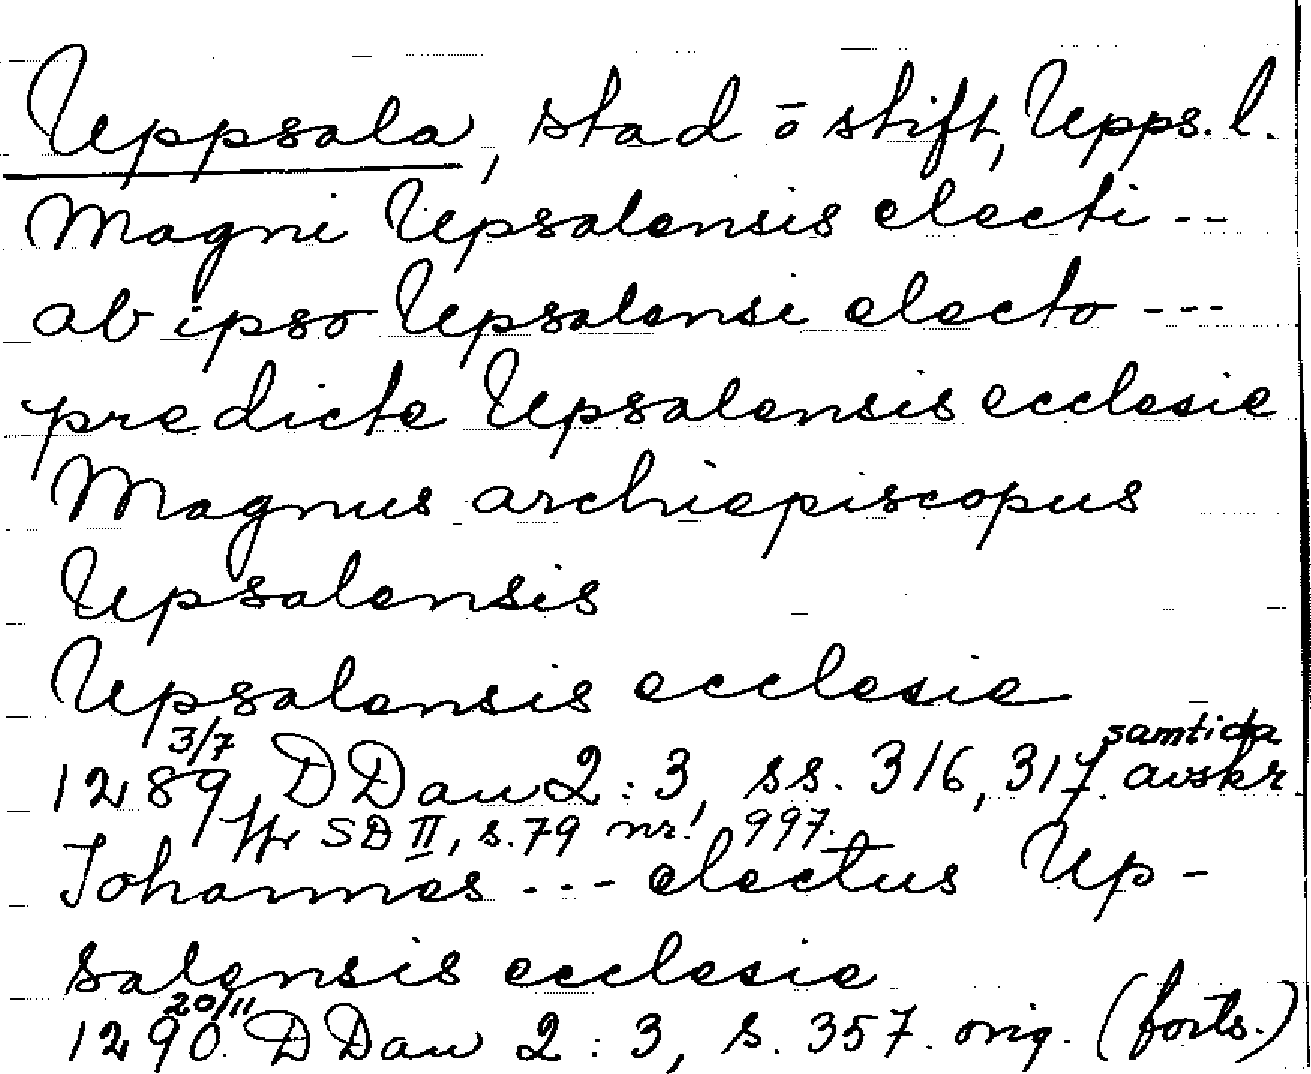 Uppsala, stad o stift, Upps. l.
Magni Upsalensis electi --
ab ipso Upsalensi electo ---
predicte Upsalensis ecclesie
Magnus archiepiscopus
Upsalensis
Upsalensis ecclesie
1289 3/7, DDan 2:3, ss. 316, 317. samtida avskr.
Jfr SD II, s. 79 nr! 997.
Johannes --- electus Up-
salensis ecclesie
1290 20/11. DDan 2:3, s. 357. orig. (forts.)